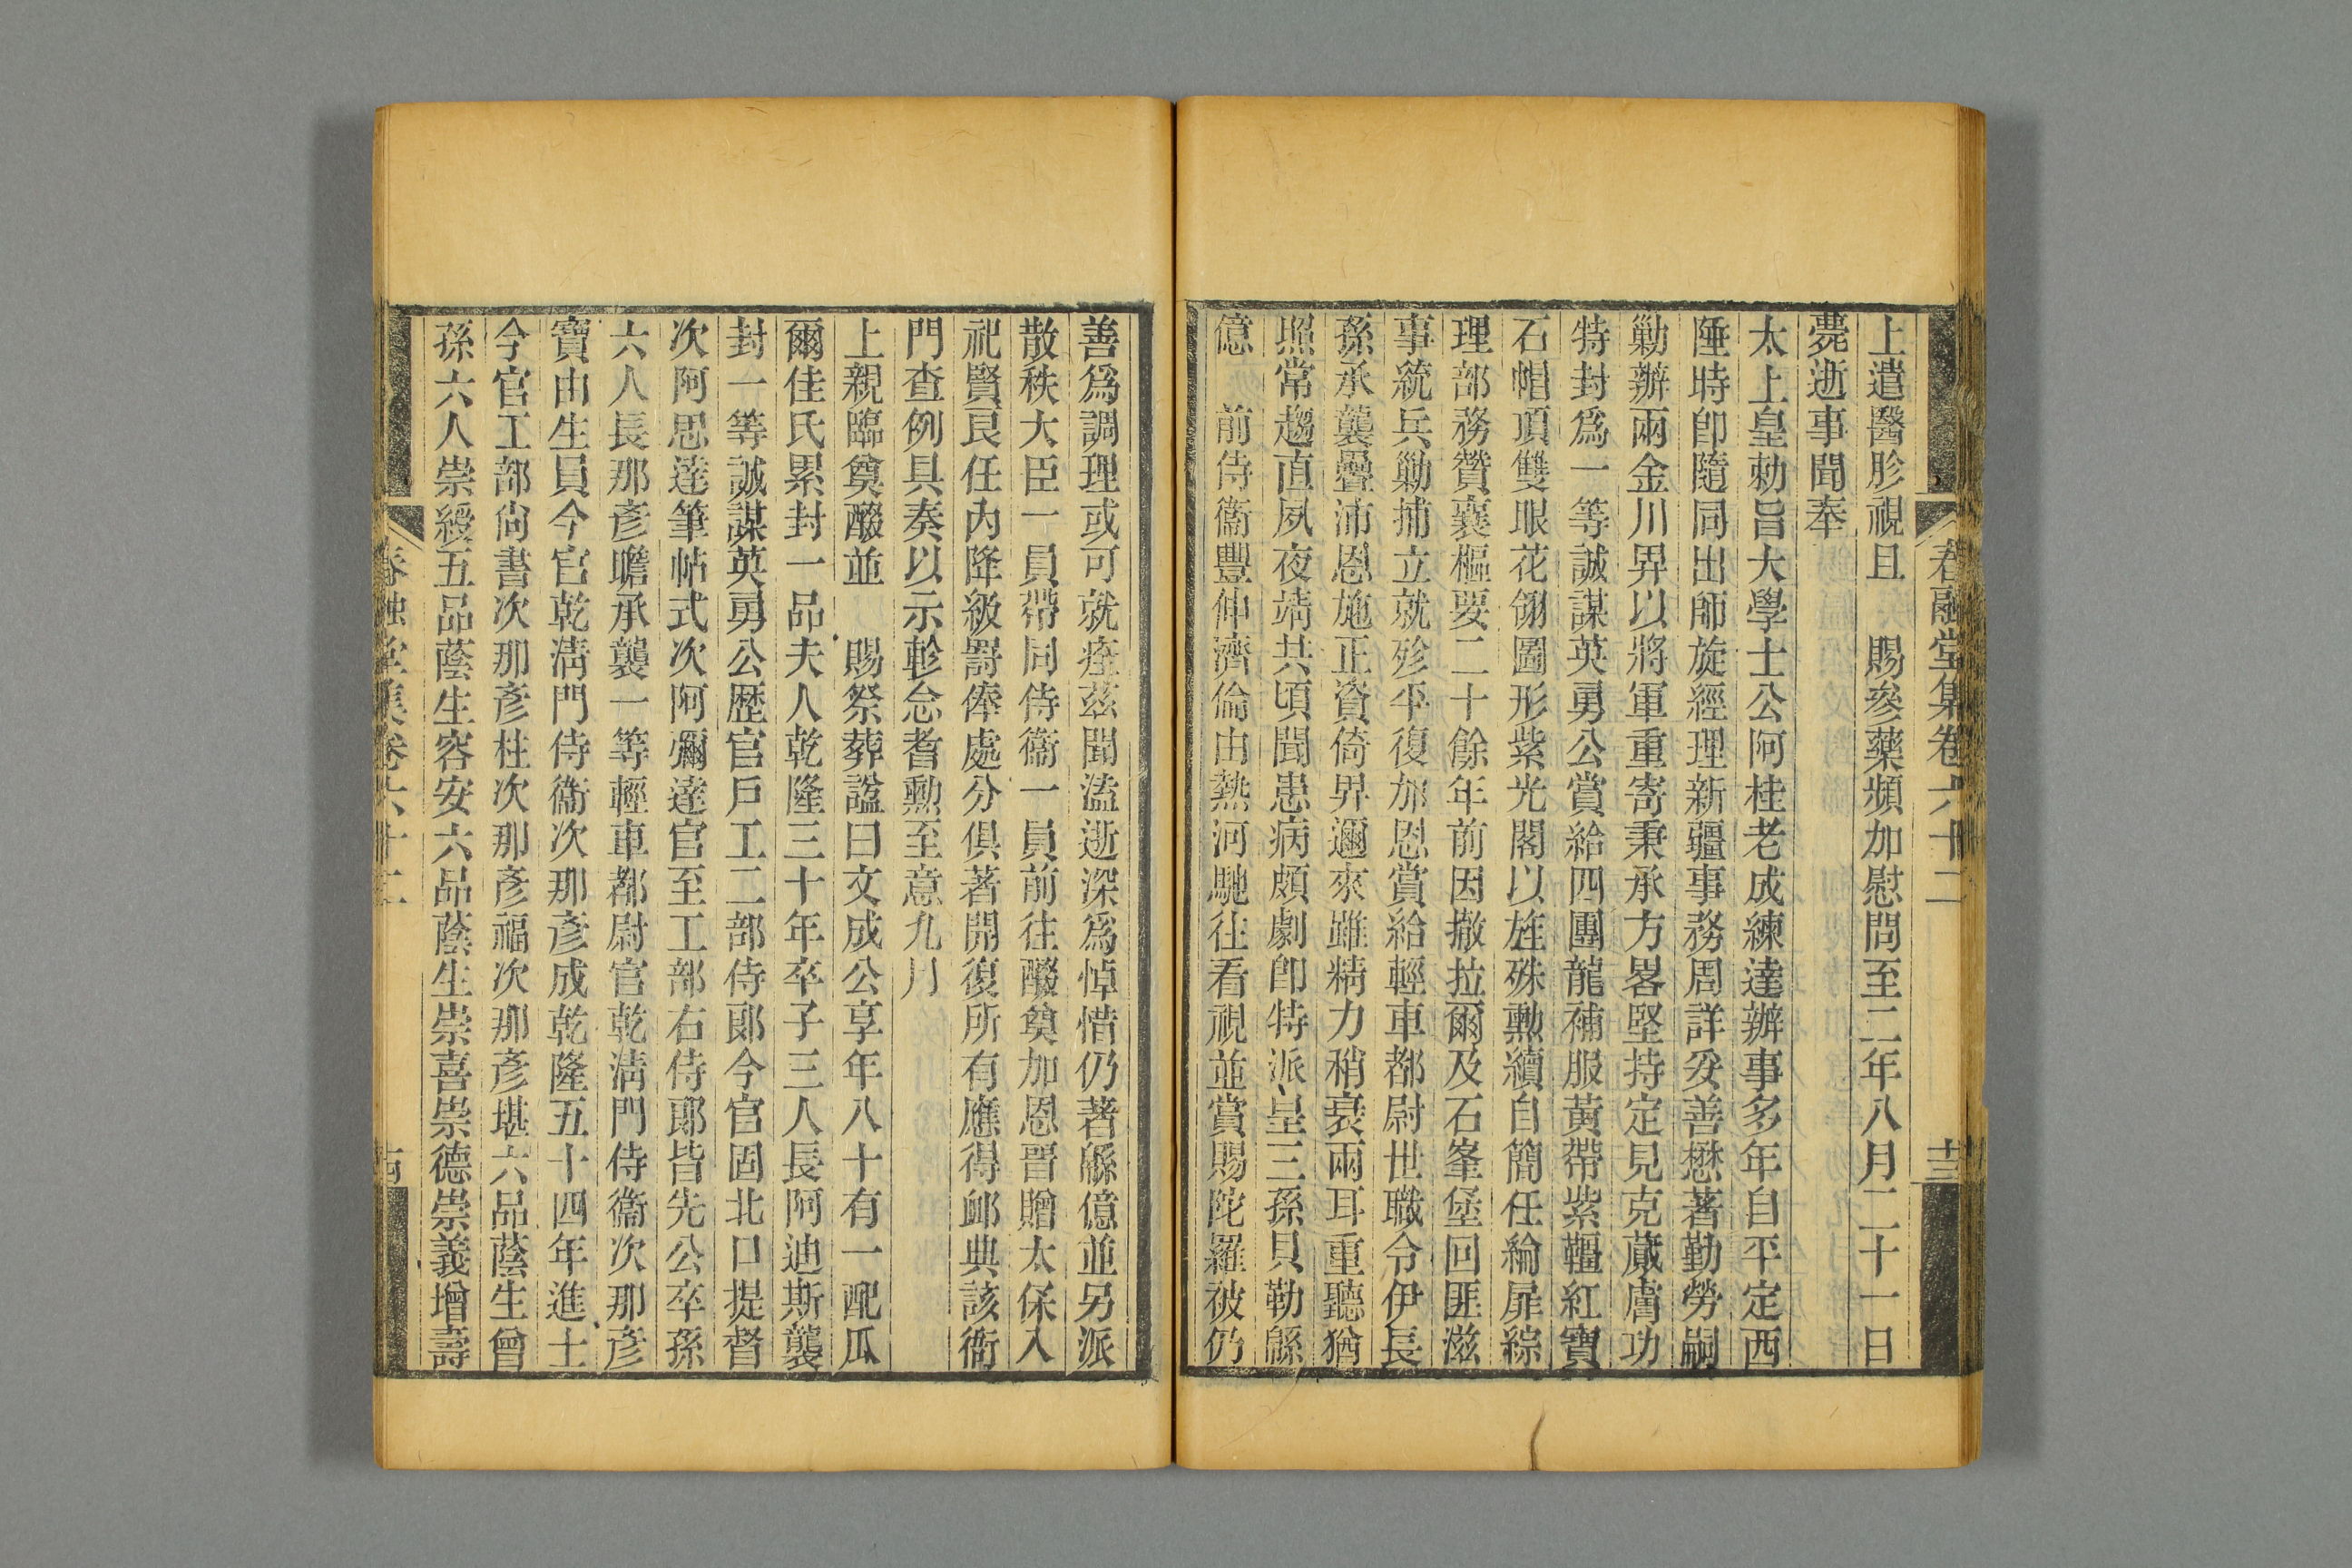 春融堂集卷六十二
十三
上遣醫胗視且　賜參藥頻加慰問至二年八月二十一日
薨逝事聞奉
太上皇勅旨大學士公阿桂老成練達辦事多年自平定西
陲時卽隨同出師旋經理新疆事務周詳妥善懋著勤勞嗣
勦辦兩金川畀以將軍重寄秉承方畧堅持定見克蕆膚功
特封爲一等誠謀英勇公賞給四團龍補服黃帶紫韁紅寶
石帽頂雙眼花翎圖形紫光閣以旌殊勳續自簡任綸扉綜
理部務贊襄樞要二十餘年前因撒拉爾及石峯堡回匪滋
事統兵勦捕立就殄平復加恩賞給輕車都尉世職令伊長
孫承襲疊沛恩施正資倚畀邇來雖精力稍衰兩耳重聽猶
照常趨直夙夜靖共頃聞患病頗劇卽特派皇三孫貝勒緜
億　前侍衞豐伸濟倫由熱河馳往看視並賞賜陀羅被仍
善爲調理或可就痊茲聞溘逝深爲悼惜仍著緜億並另派
散秩大臣一員帶同侍衞一員前往醊奠加恩晉贈太保入
祀賢良任內降級罸俸處分俱著開復所有應得䘏典該衙
門查例具奏以示軫念耆勳至意九月
上親臨奠醊並　賜祭葬諡曰文成公享年八十有一配瓜
爾佳氏累封一品夫人乾隆三十年卒子三人長阿迪斯襲
封一等誠謀英勇公歷官戶工二部侍郞今官固北口提督
次阿思達筆帖式次阿彌達官至工部右侍郞皆先公卒孫
六人長那彥瞻承襲一等輕車都尉官乾淸門侍衞次那彥
寶由生員今官乾淸門侍衞次那彥成乾隆五十四年進士
今官工部尙書次那彥柱次那彥福次那彥堪六品蔭生曾
孫六人崇綬五品蔭生容安六品蔭生崇喜崇德崇義增壽
春融堂集卷六十二